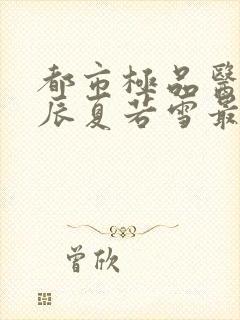 都市極品醫
辰夏若雪最
曾欣